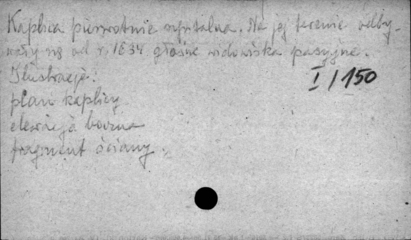 Kaplica pierwotnie szpitalna. Na jej terenie odby-
wały się od r. 1834 głośne widowiska pasyjne.
Ilustracje:
I/150
plan kaplicy
elewacja boczna
fragment ściany.